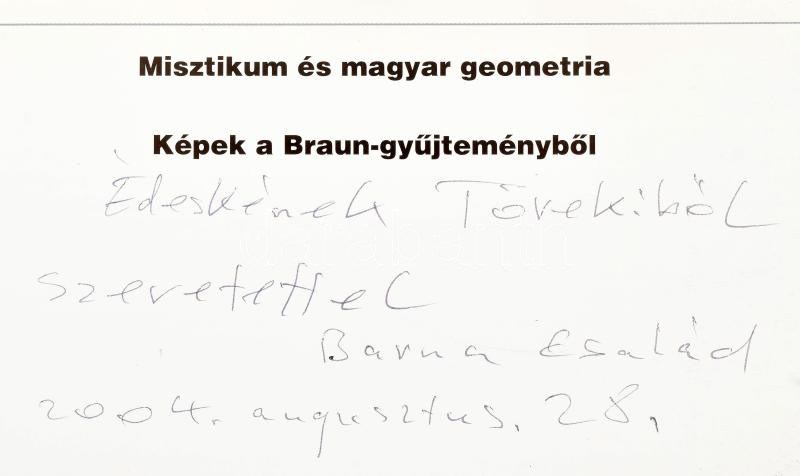 Misztikum és magyar geometria
Képek a Braun-gyűjteményből
Édeskének Törekiből
szeretettel
Barna Család
2004. augusztus. 28.